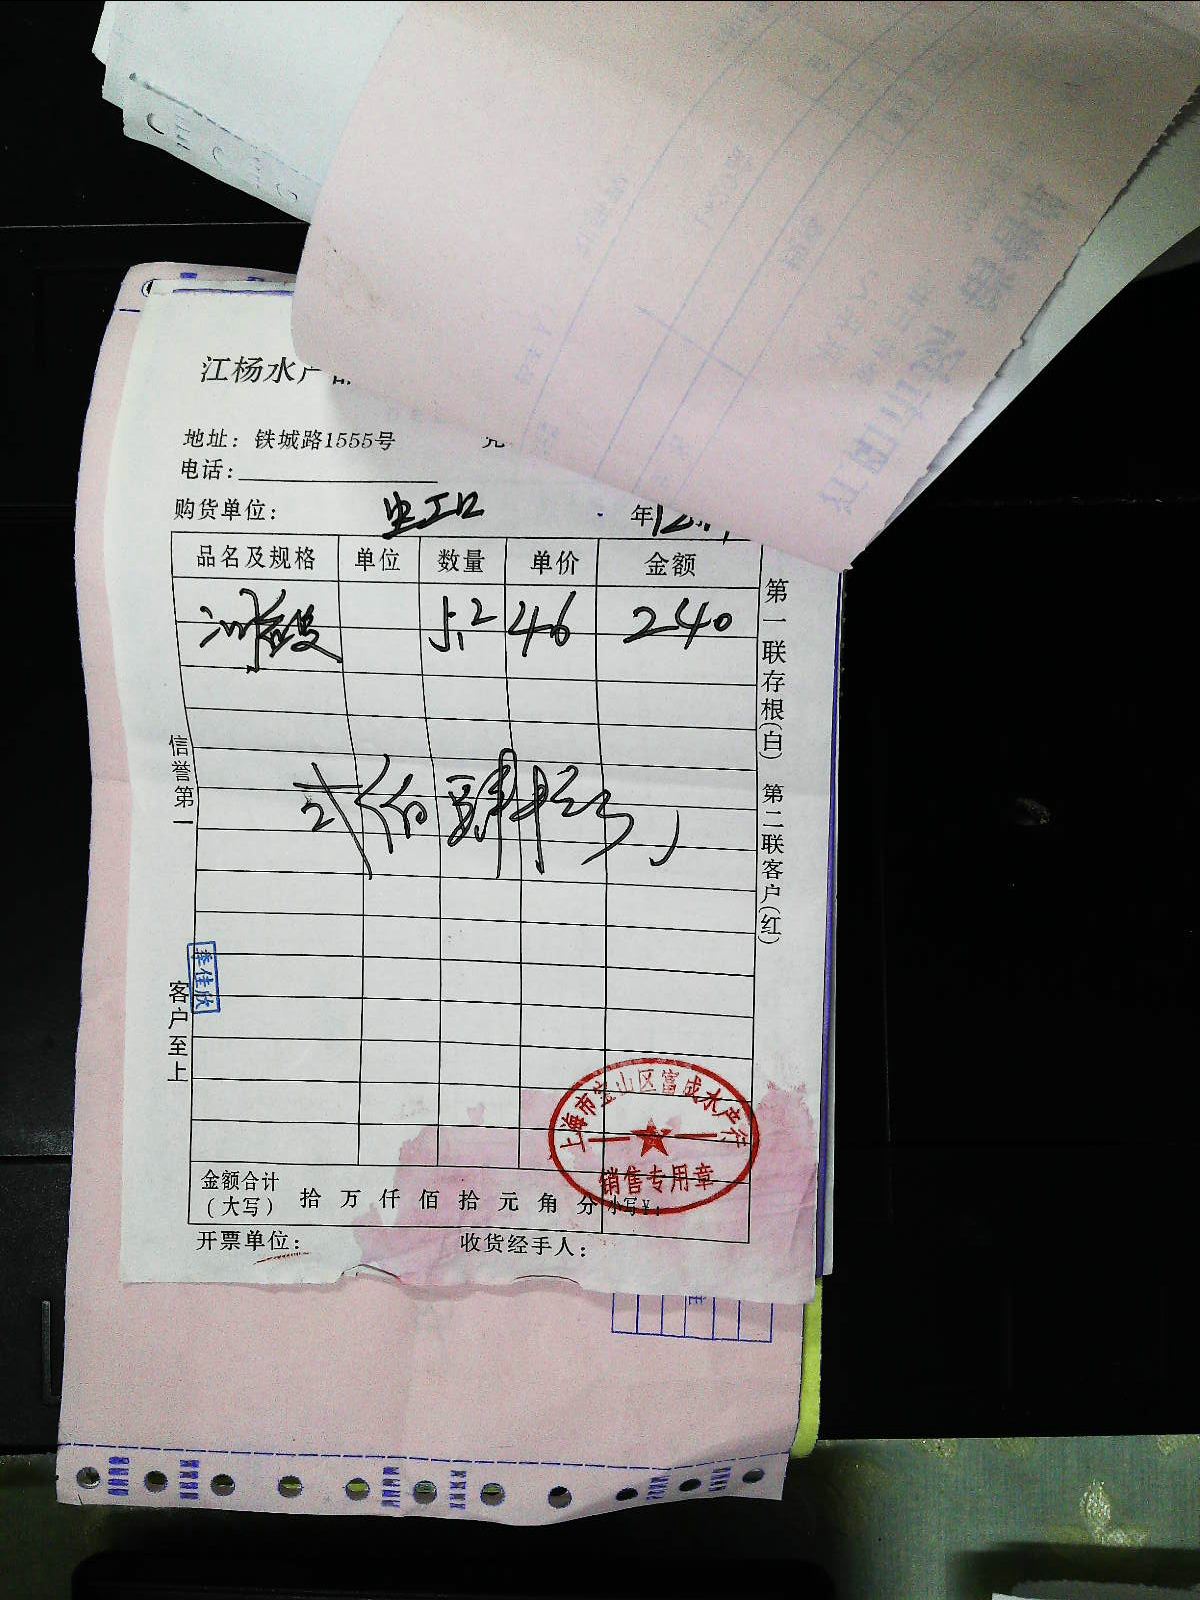 江杨水产
地址：铁城路1555号
电话：
购货单位：
年12
品名及规格 单位 数量 单价 金额
5.2 46 240
贰佰肆拾
第一联存根(白) 第二联客户(红)
信誉第一
客户至上
李佳欣
上海市宝山区富成水产行
销售专用章
金额合计
（大写） 拾 万 仟 佰 拾 元 角 分 小写¥：
开票单位： 收货经手人：